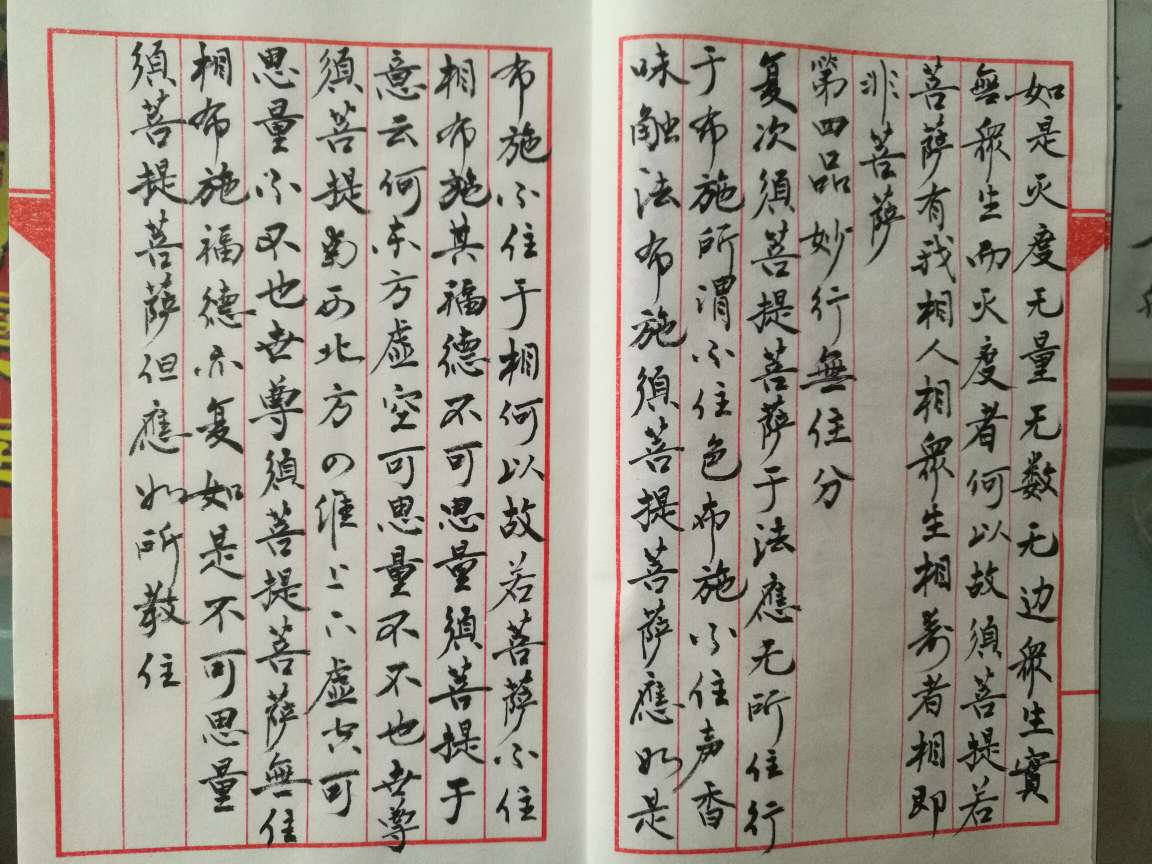 如是灭度无量无数无边衆生實
無衆生而灭度者何以故須菩提若
菩萨有我相人相衆生相寿者相即
非菩萨
第四品妙行無住分
复次須菩提菩萨于法應无所住行
于布施所谓不住色布施不住声香
味触法布施須菩提菩萨應如是
布施不住于相何以故若菩萨不住
相布施其福德不可思量須菩提于
意云何东方虚空可思量不不也世尊
須菩提南西北方四维上下虚空可
思量不不也世尊須菩提菩萨無住
相布施福德亦复如是不可思量
須菩提菩萨但應如所教住